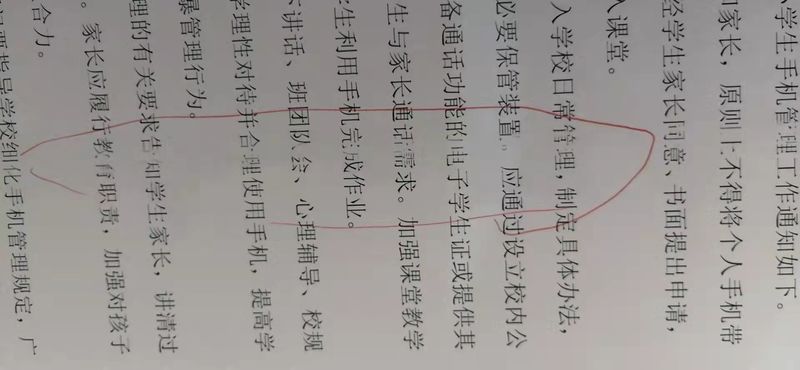 小学生手机管理工作通知如下。
家长，原则上不得将个人手机带
经学生家长同意、书面提出申请，
入课堂。
入学校日常管理，制定具体办法，
必要保管装置。应通过设立校内公
备通话功能的电子学生证或提供其
生与家长通话需求。加强课堂教学
学生利用手机完成作业。
讲话、班团队会、心理辅导、校规
学理性对待并合理使用手机，提高学
暴管理行为。
理的有关要求告知学生家长，讲清过
。家长应履行教育职责，加强对孩子
合力。
要指导学校细化手机管理规定，广